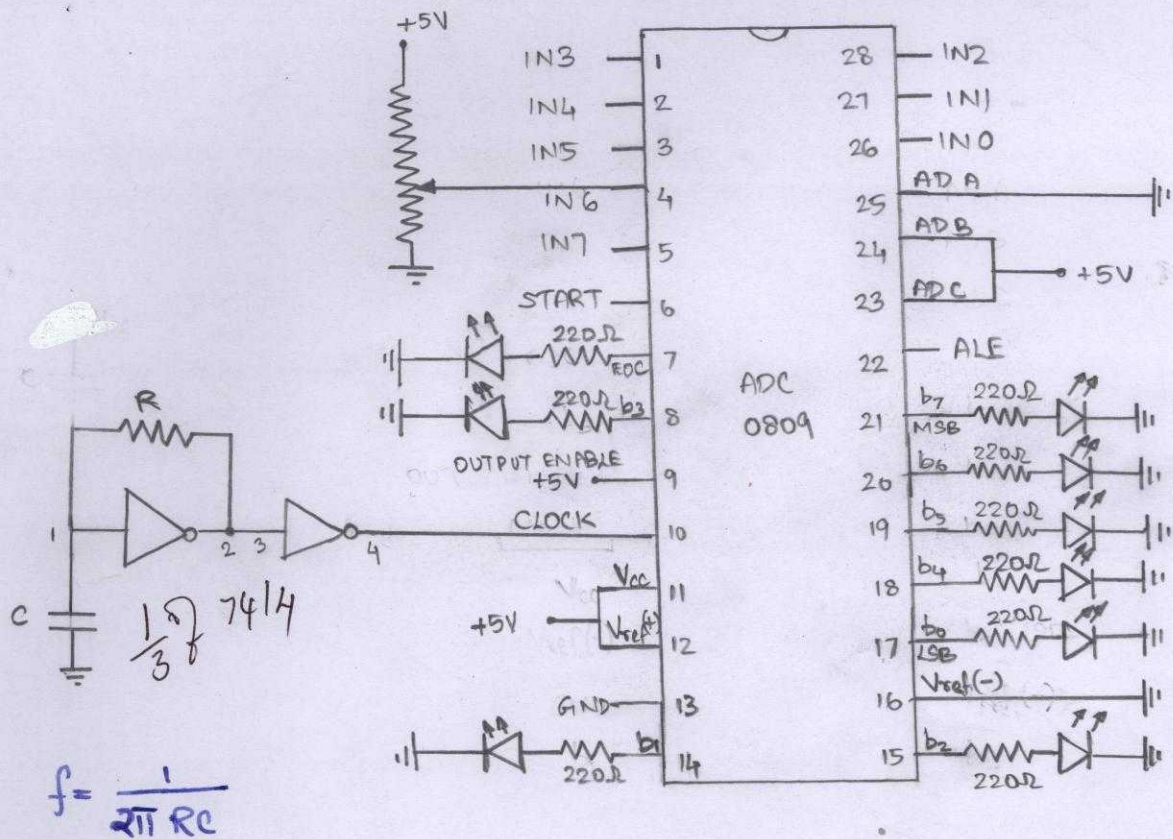 +5V
IN3 1
IN4 2
IN5 3
IN6 4
IN7 5
START 6
220Ω EOC 7
220Ω b3 8
OUTPUT ENABLE
+5V 9
CLOCK 10
Vcc 11
+5V
Vref(+) 12
GND 13
b1 14
220Ω
ADC
0809
28 IN2
27 IN1
26 IN0
25 AD A
24 ADB
+5V
23 ADC
22 ALE
21 b7 MSB 220Ω
20 b6 220Ω
19 b5 220Ω
18 b4 220Ω
17 b0 LSB 220Ω
16 Vref(-)
15 b2
220Ω
R
1 2 3 4
C
1/3 of 7414
f = 1/2π RC